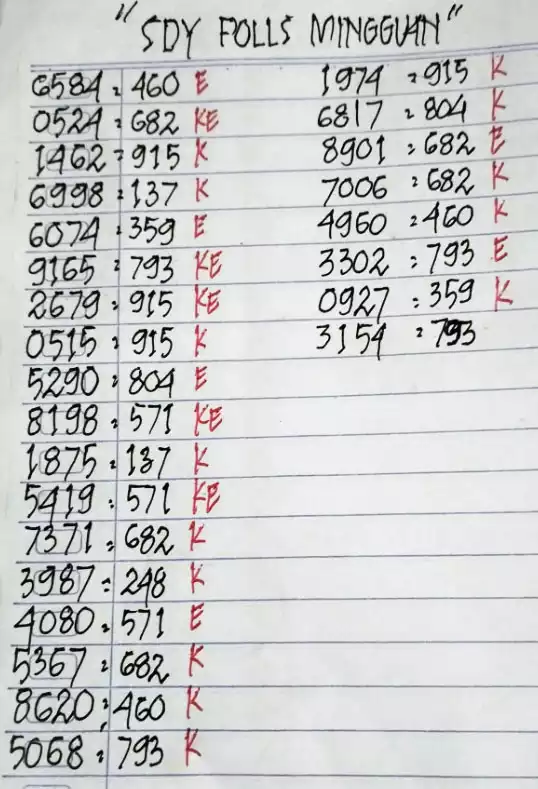 "SDY POLLS MINGGUAN"
6584 : 460 E
0524 : 682 KE
1462 : 915 K
6998 : 137 K
6074 : 359 E
9165 : 793 KE
2679 : 915 KE
0515 : 915 K
5290 : 804 E
8198 : 571 KE
1875 : 137 K
5419 : 571 KE
7371 : 682 K
3987 : 248 K
4080 : 571 E
5367 : 682 K
8620 : 460 K
5068 : 793 K
1974 : 915 K
6817 : 804 K
8901 : 682 E
7006 : 682 K
4960 : 460 K
3302 : 793 E
0927 : 359 K
3154 : 793